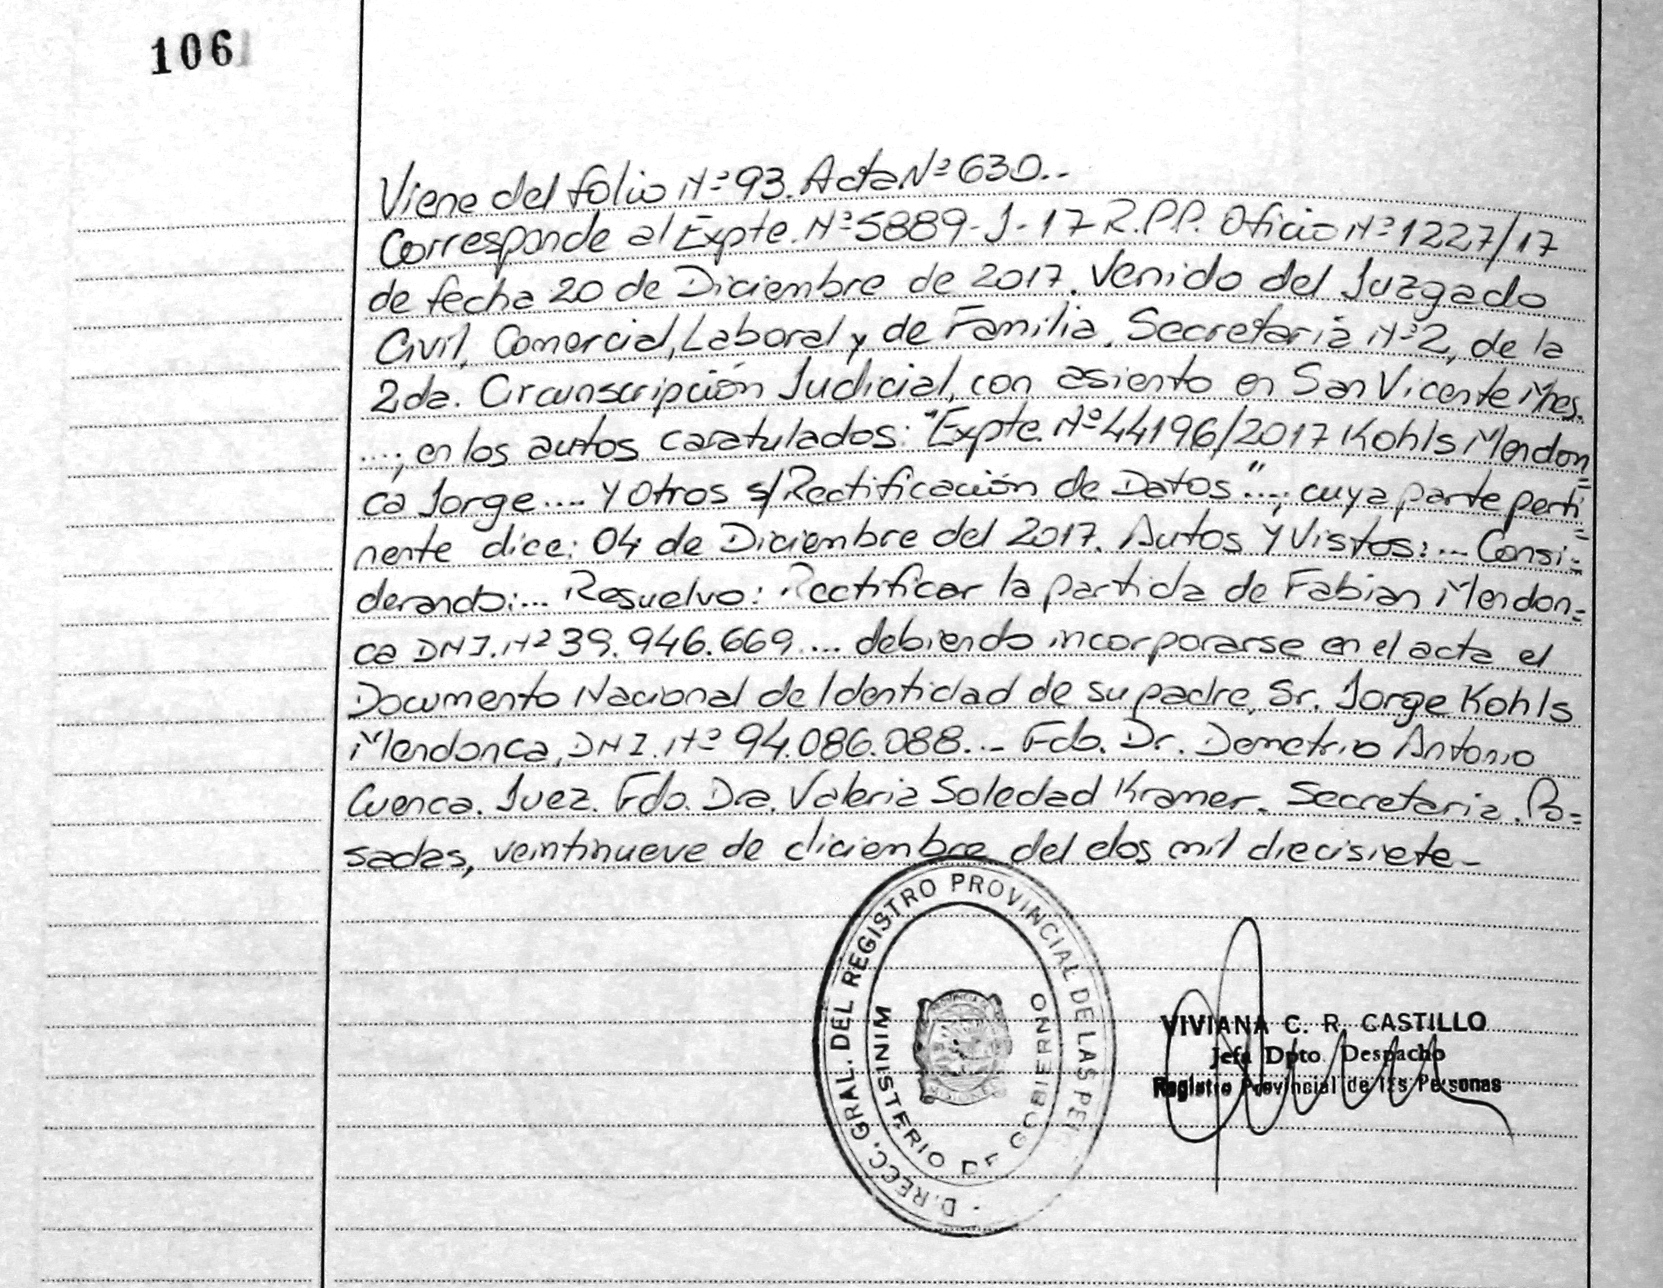 106
Viene del folio Nº 93. Acta Nº 630..
Corresponde al Expte. Nº 5889-J-17 R.P.P. Oficio Nº 1227/17
de fecha 20 de Diciembre de 2017. Venido del Juzgado
Civil, Comercial, Laboral y de Familia, Secretaria Nº 2, de la
2da. Circunscripción Judicial, con asiento en San Vicente Mnes.
...; en los autos caratulados: "Expte. Nº 44196/2017 Kohls Mendon=
ca Jorge.... y Otros s/Rectificación de Datos"...; cuya parte perti=
nente dice: 04 de Diciembre del 2017. Autos Y Vistos:... Consi=
derando:... Resuelvo: Rectificar la partida de Fabian Mendon=
ca DNI. Nº 39.946.669.... debiendo incorporarse en el acta el
Documento Nacional de Identidad de su padre, Sr. Jorge Kohls
Mendonca, DNI. Nº 94.086.088... Fdo. Dr. Demetrio Antonio
Cuenca. Juez. Fdo. Dra. Valeria Soledad Kramer. Secretaria. Po=
sadas, veintinueve de diciembre del dos mil diecisiete-
D.RECC. GRAL. DEL REGISTRO PROVINCIAL DE LAS PER
MINISTERIO DE GOBIERNO
VIVIANA C. R. CASTILLO
Jefa Dpto. Despacho
Registro Provincial de las Personas